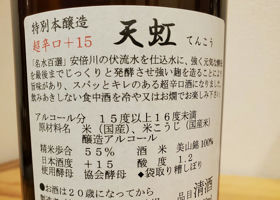 特別本醸造 天虹 てんこう
超辛口+15
「名水百選」安倍川の伏流水を仕込水に、強く元気な酵母
を最後までじっくりと発酵させ強い麹を造ることにより
旨みがあり、スパッとキレのある超辛口酒になりました。
飲みあきしない食中酒を冷や又はお燗でお楽しみ下さい。
アルコール分 15度以上16度未満
原材料名 米(国産)、米こうじ(国産米)
醸造アルコール
精米歩合 55% 酒米 美山錦100%
日本酒度 +15 酸度 1.2
使用酵母 協会酵母 ◆袋取り槽しぼり
●お酒は20歳になってから
品目 清酒